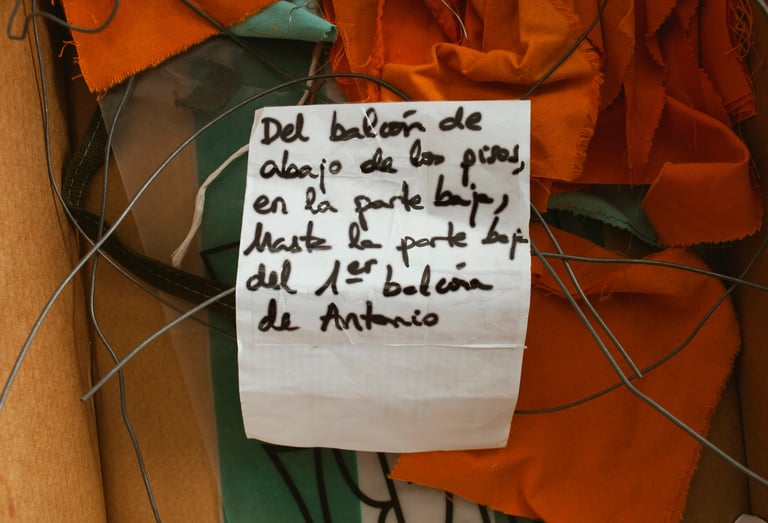 Del balcón de
abajo de los pisos,
en la parte baja,
hasta la parte baja
del 1er balcón
de Antonio